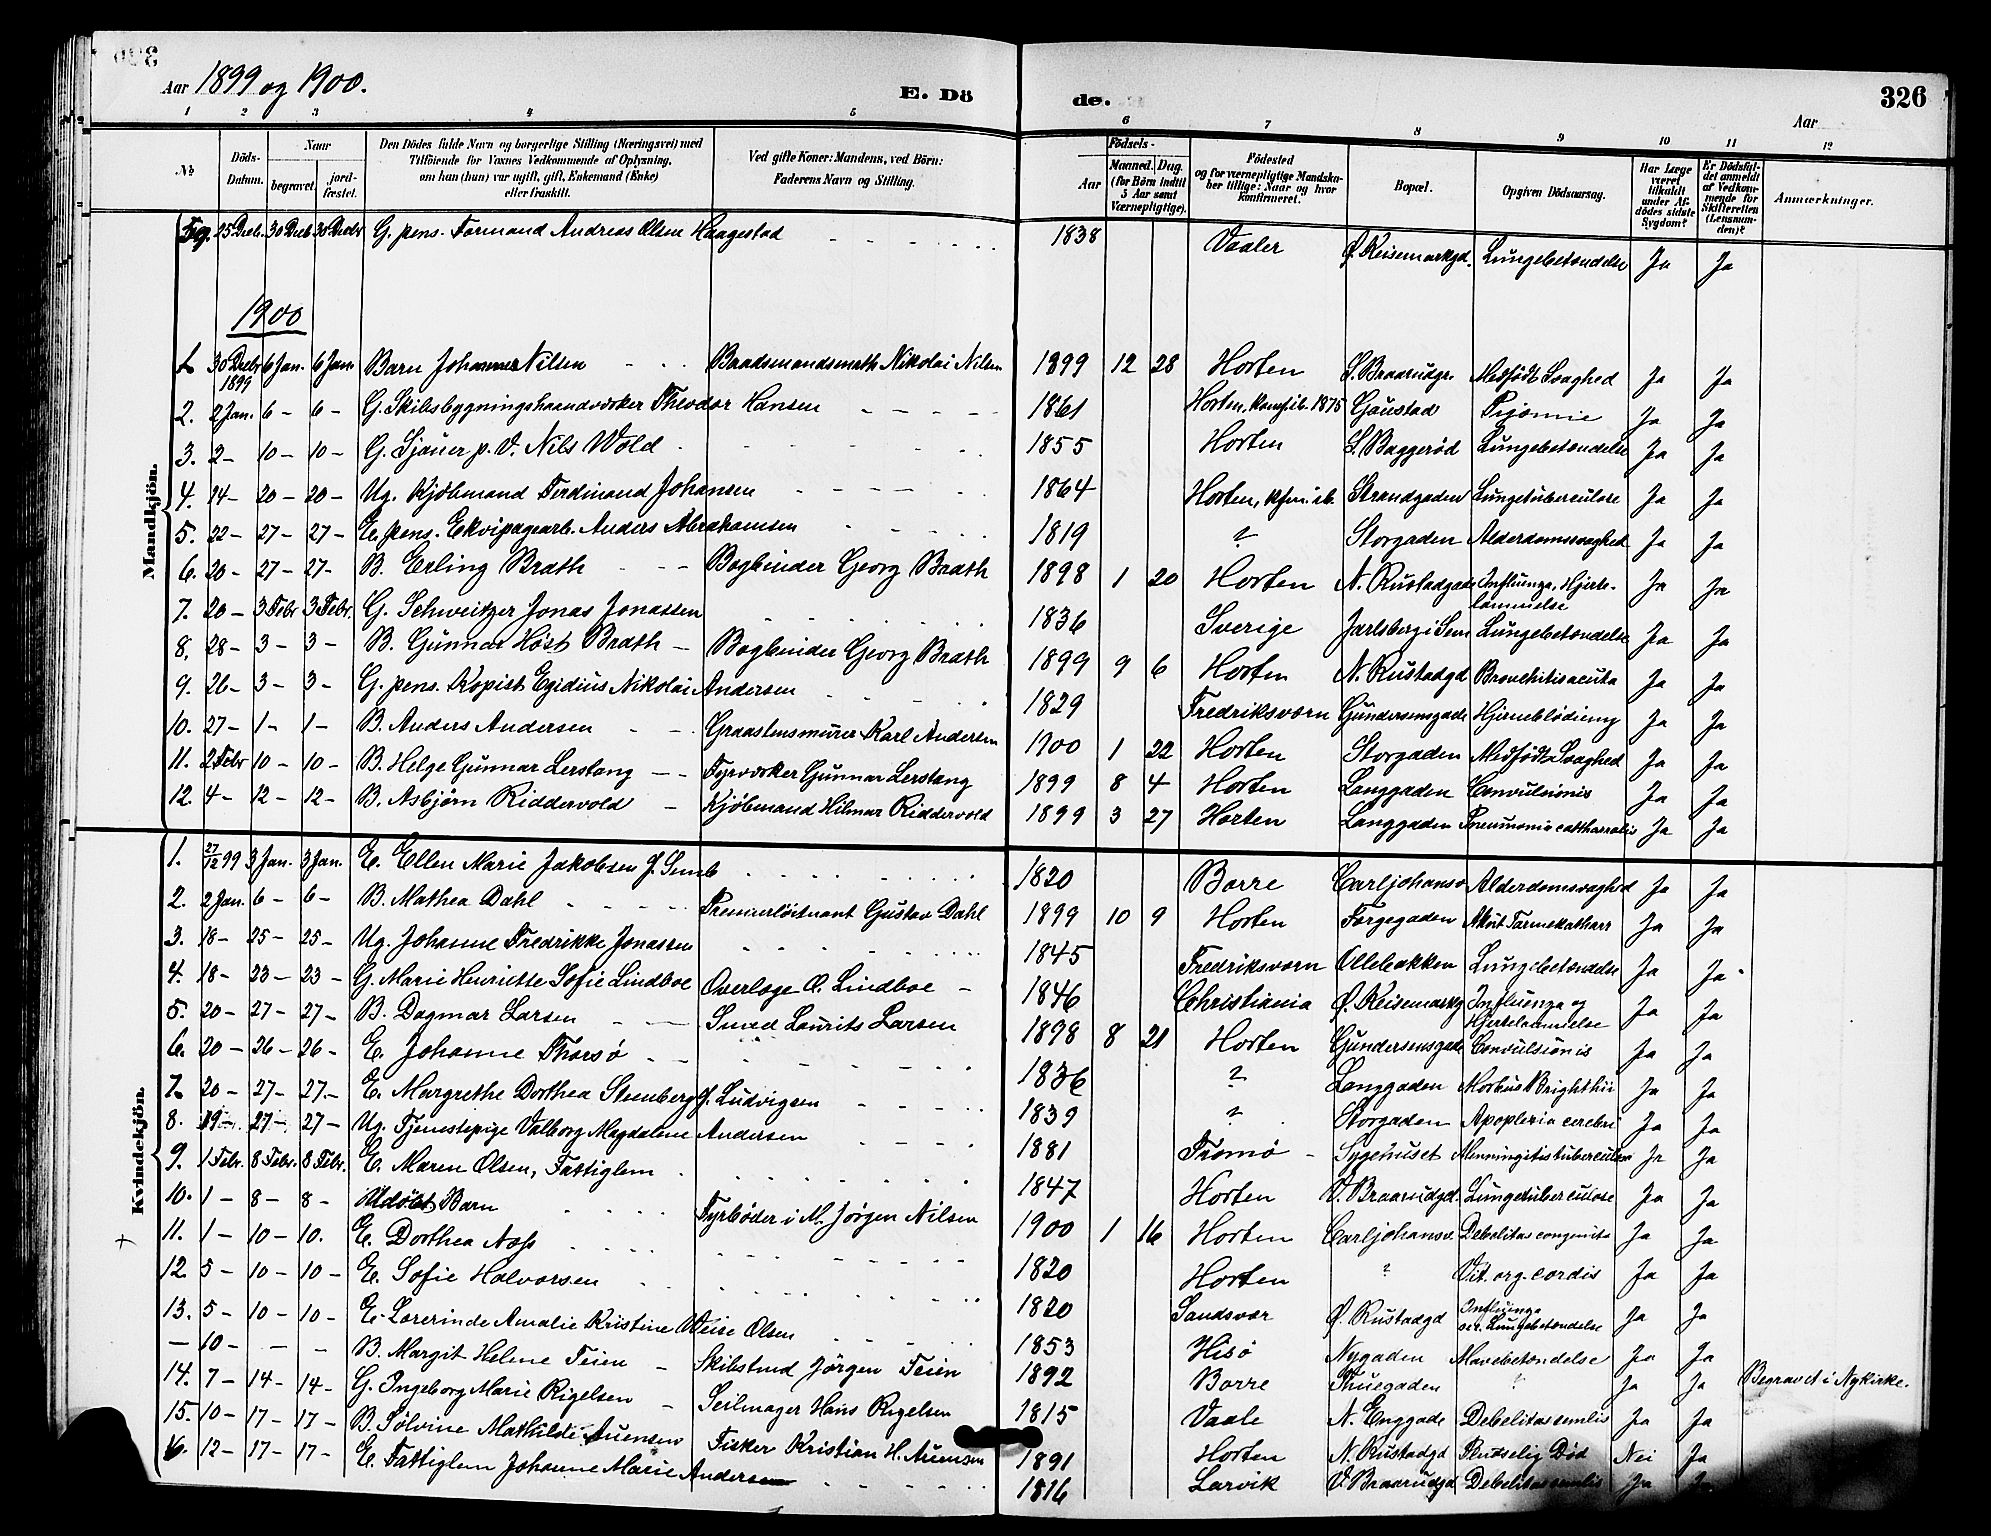 Aar 1899 og 1900.
E. Dö de. Aar 326
1 2 3 4 5 6 7 8 9 10 11 12
No Döds-Datum. Naar begravet. jord-fæstet. Den Dödes fulde Navn og borgerlige Stilling (Næringsvei) med Tilföiende for Voxnes Vedkommende af Oplysning, om han (hun) var ugift, gift, Enkemand (Enke) eller fraskilt. Ved gifte Koner: Mandens, ved Börn: Faderens Navn og Stilling. Födsels- Aar Maaned. Dag. (for Börn indtil 5 Aar samt Værnepligtige). Födested og for værnepligtige Mandskaber tillige: Naar og hvor konfirmeret. Bopæl. Opgiven Dödsaarsag. Har Læge været tilkaldt under Afdödes sidste Sygdom? Er Dödsfaldet anmeldt af Vedkommende for Skifteretten (Lensmanden)? Anmærkninger.
25 Decb. 30 Decb 30 Decbr G. pens. Formand Andreas Olsen Haagestad 1838 Vaaler Ø. Keisemarkgd. Lungebetændelse Ja Ja
1900
Mandkjön.
1. 30 Decbr 1899 6 Jan. 6 Jan Barn Johannes Nilsen Baadsmandsmath Nikolai Nilsen 1899 12 28 Horten S. Braarudgr. Medfødt Svaghed Ja Ja
2. 2 Jan. 6 - 6 - G. Skibsbygningshaandværker Theodor Hansen 1861 Horten, konf. ib. 1875 Gaustad Pyæmie Ja Ja
3. 2 - 10 - 10 - G. Sjauer p. V. Nils Wold 1855 Horten S. Baggerød Lungebetændelse Ja Ja
4. 14 - 20 - 20 - Ug. Kjøbmand Ferdinand Johansen 1864 Horten, kfm. ib. Strandgaden Lungetuberculose Ja Ja
5. 22 - 27 - 27 - E. pens. Ekvipagearb. Anders Abrahamsen 1819 ? Storgaden Alderdomssvaghed Ja Ja
6. 20 - 27 - 27 - B. Erling Brath Bogbinder Georg Brath 1898 1 20 Horten N. Rustadgade Influenza, Hjerte-lammelse Ja Ja
7. 20 - 3 Febr 3 Febr. G. Schweitzer Jonas Jonassen 1836 Sverige Jarlsberg i Sem Lungebetændelse Ja Ja
8. 28 - 3 - 3 - B. Gunnar Høst Brath - Bogbinder Georg Brath 1899 9 6 Horten N. Rustadgd Bronchitis acuta Ja Ja
9. 26 - 3 - 3 - G. pens. Kopist Egidius Nikolai Andersen 1829 Fredriksværn Gundersensgade Hjerneblødning Ja Ja
10. 27 - 1 - 1 - B. Anders Andersen Graastensmurer Karl Andersen 1900 1 22 Horten Storgaden Medfødt Svaghed Ja Ja
11. 2 Febr 10 - 10 - B. Helge Gunnar Lerstang Fyrværker Gunnar Lerstang 1899 8 4 Horten Langgaden Convulsionis Ja Ja
12. 4 - 12 - 12 - B. Asbjørn Riddervold Kjøbmand Hilmar Riddervold 1899 3 27 Horten Langgaden Pneumonia cattharralis Ja Ja
Kvindekjön.
1. 27/12 99 3 Jan. 3 Jan. E. Ellen Marie Jakobsen f. Semb 1820 Borre Carljohansv. Alderdomssvaghed Ja Ja
2. 2 Jan. 6 - 6 - B. Mathea Dahl Premierløitnant Gustav Dahl 1899 10 9 Horten Torgegaden Akut Tarmekatharr Ja Ja
3. 18 - 25 - 25 - Ug. Johanne Fredrikke Jonassen 1845 Fredriksværn Ollebakken Lungebetændelse Ja Ja
4. 18 - 23 - 23 - G. Marie Henriette Sofie Lindboe Overlæge O. Lindboe - 1846 Christiania Ø. Keisemarkg Influenza og Hjertelammelse Ja Ja
5. 20 - 27 - 27 - B. Dagmar Larsen Smed Laurits Larsen 1898 8 21 Horten Gundersensgade Convulsionis Ja Ja
6. 20 - 26 - 26 - E. Johanne Thorsø 1836 ? Langgaden Morbus Brighthii Ja Ja
7. 20 - 27 - 27 - E. Margrethe Dorthea Stenberg f. Ludvigsen 1839 ? Storgaden Apoplexia cerebri Ja Ja
8. 19 - 27 - 27 - Ug. Tjenestepige Valborg Magdalene Andersen 1881 Tromø Sygehuset Menningitis tuberculosa Ja Ja
9. 1 Febr. 8 Febr. 8 Febr. E. Maren Olsen, Fattiglem 1847 Horten V. Braarudgd. Lungetuberculose Ja Ja
10. 1 - 8 - 8 - Udøbt Barn Fyrbøder i M. Jørgen Nilsen 1900 1 16 Horten Carljohansv. Debelitas congenita Ja Ja
11. 1 - 10 - 10. E. Dorthea Næss 1820 Horten ? Vit. org. cordis Ja Ja
12. 5 - 10 - 10 - E. Sofie Halvorsen 1820 Sandsvær Ø. Rustadgd Influenza Lungebetændelse Ja Ja
13. 5 - 10 - 10 - E. Amalie Kristine Weise Olsen 1853 Hisø Nygaden Mavebetændelse Ja Ja
- 10 - - - B. Margit Helene Teien - Skibstmd Jörgen Teien 1892 Borre Thuegaden ? Ja Ja Begravet i Nykirke.
14. 7 - 14 - 14 - G. Ingeborg Marie Rigelsen - Seilmager Hans Rigelsen 1815 Vaale N. Enggade Debelitas senilis Ja Ja
15. 10 - 17 - 17 - B. Solvine Mathilde Auensen Fisker Kristian H. Auensen 1891 Horten N. Rustadgd Pludselig Død Nei Ja
16. 12 - 17 - 17 - E. Fattiglem Johanne Marie Andersen 1816 Larvik V. Braarudgd Debelitas senilis Ja